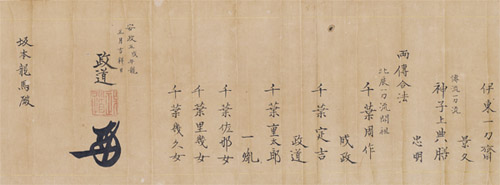 伊東一刀齋
景久
神子上典膳
忠明
兩傳合法
北辰一刀流開祖
千葉周作
成政
千葉定吉
政道
千葉重太郎
一胤
千葉佐那女
千葉里幾女
千葉幾久女
安政五戊午龍
正月吉祥日
政道
坂本龍馬殿